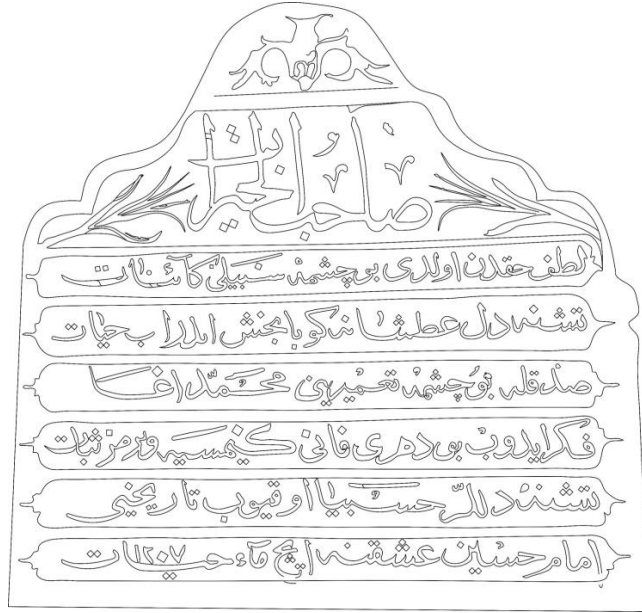 صاحب الخيرات
لطف حقدن اولدی بو چشمه سبيل كائنات
تشنه دل عطشانه كويا بخش ايدر اب حيات
صدقله بو چشمه تعميرينی محمد اغا
فكر ايدوب بو دهری فانی كيمسيه ويرمز ثبات
تشنه دللر حسبيا اوقيوب تاريخی
امام حسين عشقنه ايچ ماء حيات ١٢٠٧